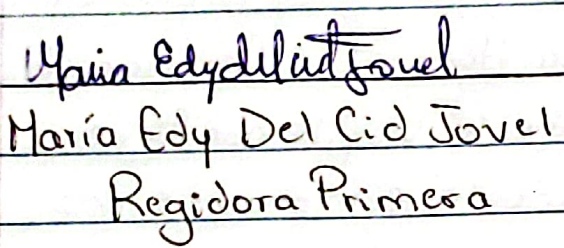 Maria Edy del cid Jovel
María Edy Del Cid Jovel
Regidora Primera